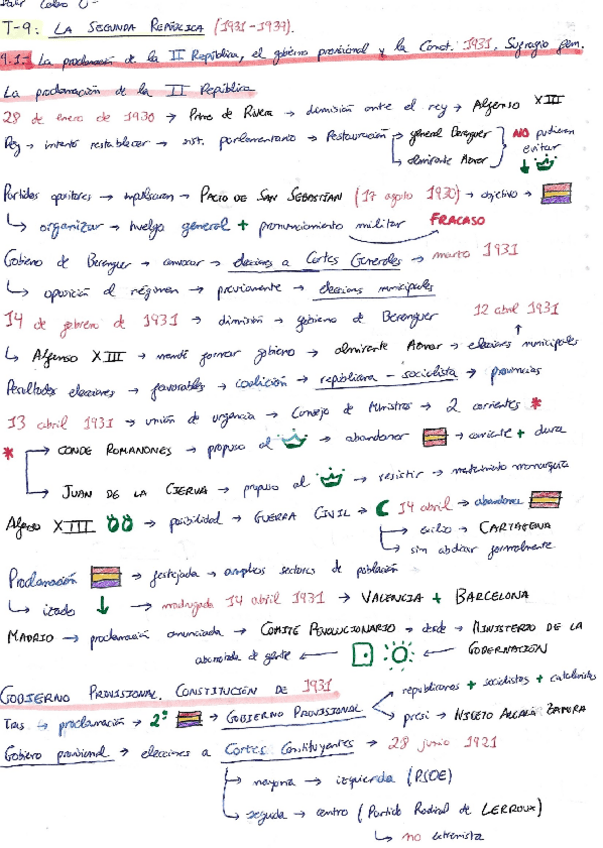 T-9: LA SEGUNDA REPÚBLICA (1931-1939).
9.1.) La proclamación de la II República, el gobierno provisional y la Const. 1931, Sufragio fem.
La proclamación de la II República
28 de enero de 1930 → Primo de Rivera → dimisión ante el rey → Alfonso XIII
Rey → intentó restablecer → sist. parlamentario → Restauración → general Berenguer NO pudieron
→ almirante Aznar evitar
Partidos opositores → impulsaron → PACTO DE SAN SEBASTIÁN (17 agosto 1930) → objetivo →
↳ organizar → huelga general + pronunciamiento militar FRACASO
Gobierno de Berenguer → convocar → elecciones a Cortes Generales → marzo 1931
↳ oposición al régimen → previamente → elecciones municipales
14 de febrero de 1931 → dimisión → gobierno de Berenguer 12 abril 1931
↳ Alfonso XIII → mandó formar gobierno → almirante Aznar → elecciones municipales
Resultados elecciones → favorables → coalición → republicana - socialista → provincias
13 abril 1931 → unión de urgencia → Consejo de Ministros → 2 corrientes *
* → CONDE ROMANONES → propuso al → abandonar → corriente + dura
→ JUAN DE LA CIERVA → propuso al → resistir → mantenimiento monarquía
Alfonso XIII → posibilidad → GUERRA CIVIL → 14 abril → abandonar
→ exilio → CARTAGENA
→ sin abdicar formalmente
Proclamación → festejada → amplios sectores de población
↳ izado ↓ → madrugada 14 abril 1931 → VALENCIA + BARCELONA
MADRID → proclamación anunciada → COMITÉ REVOLUCIONARIO → desde → MINISTERIO DE LA
GOBERNACIÓN
abarrotada de gente
GOBIERNO PROVISIONAL. CONSTITUCIÓN DE 1931
Tras → proclamación → 2ª → GOBIERNO PROVISIONAL republicanos + socialistas + catalanistas
→ presi → NICETO ALCALÁ ZAMORA
Gobierno provisional → elecciones a Cortes Constituyentes → 28 junio 1921
→ mayoría → izquierda (PSOE)
→ segunda → centro (Partido Radical de LERROUX)
↳ no extremista